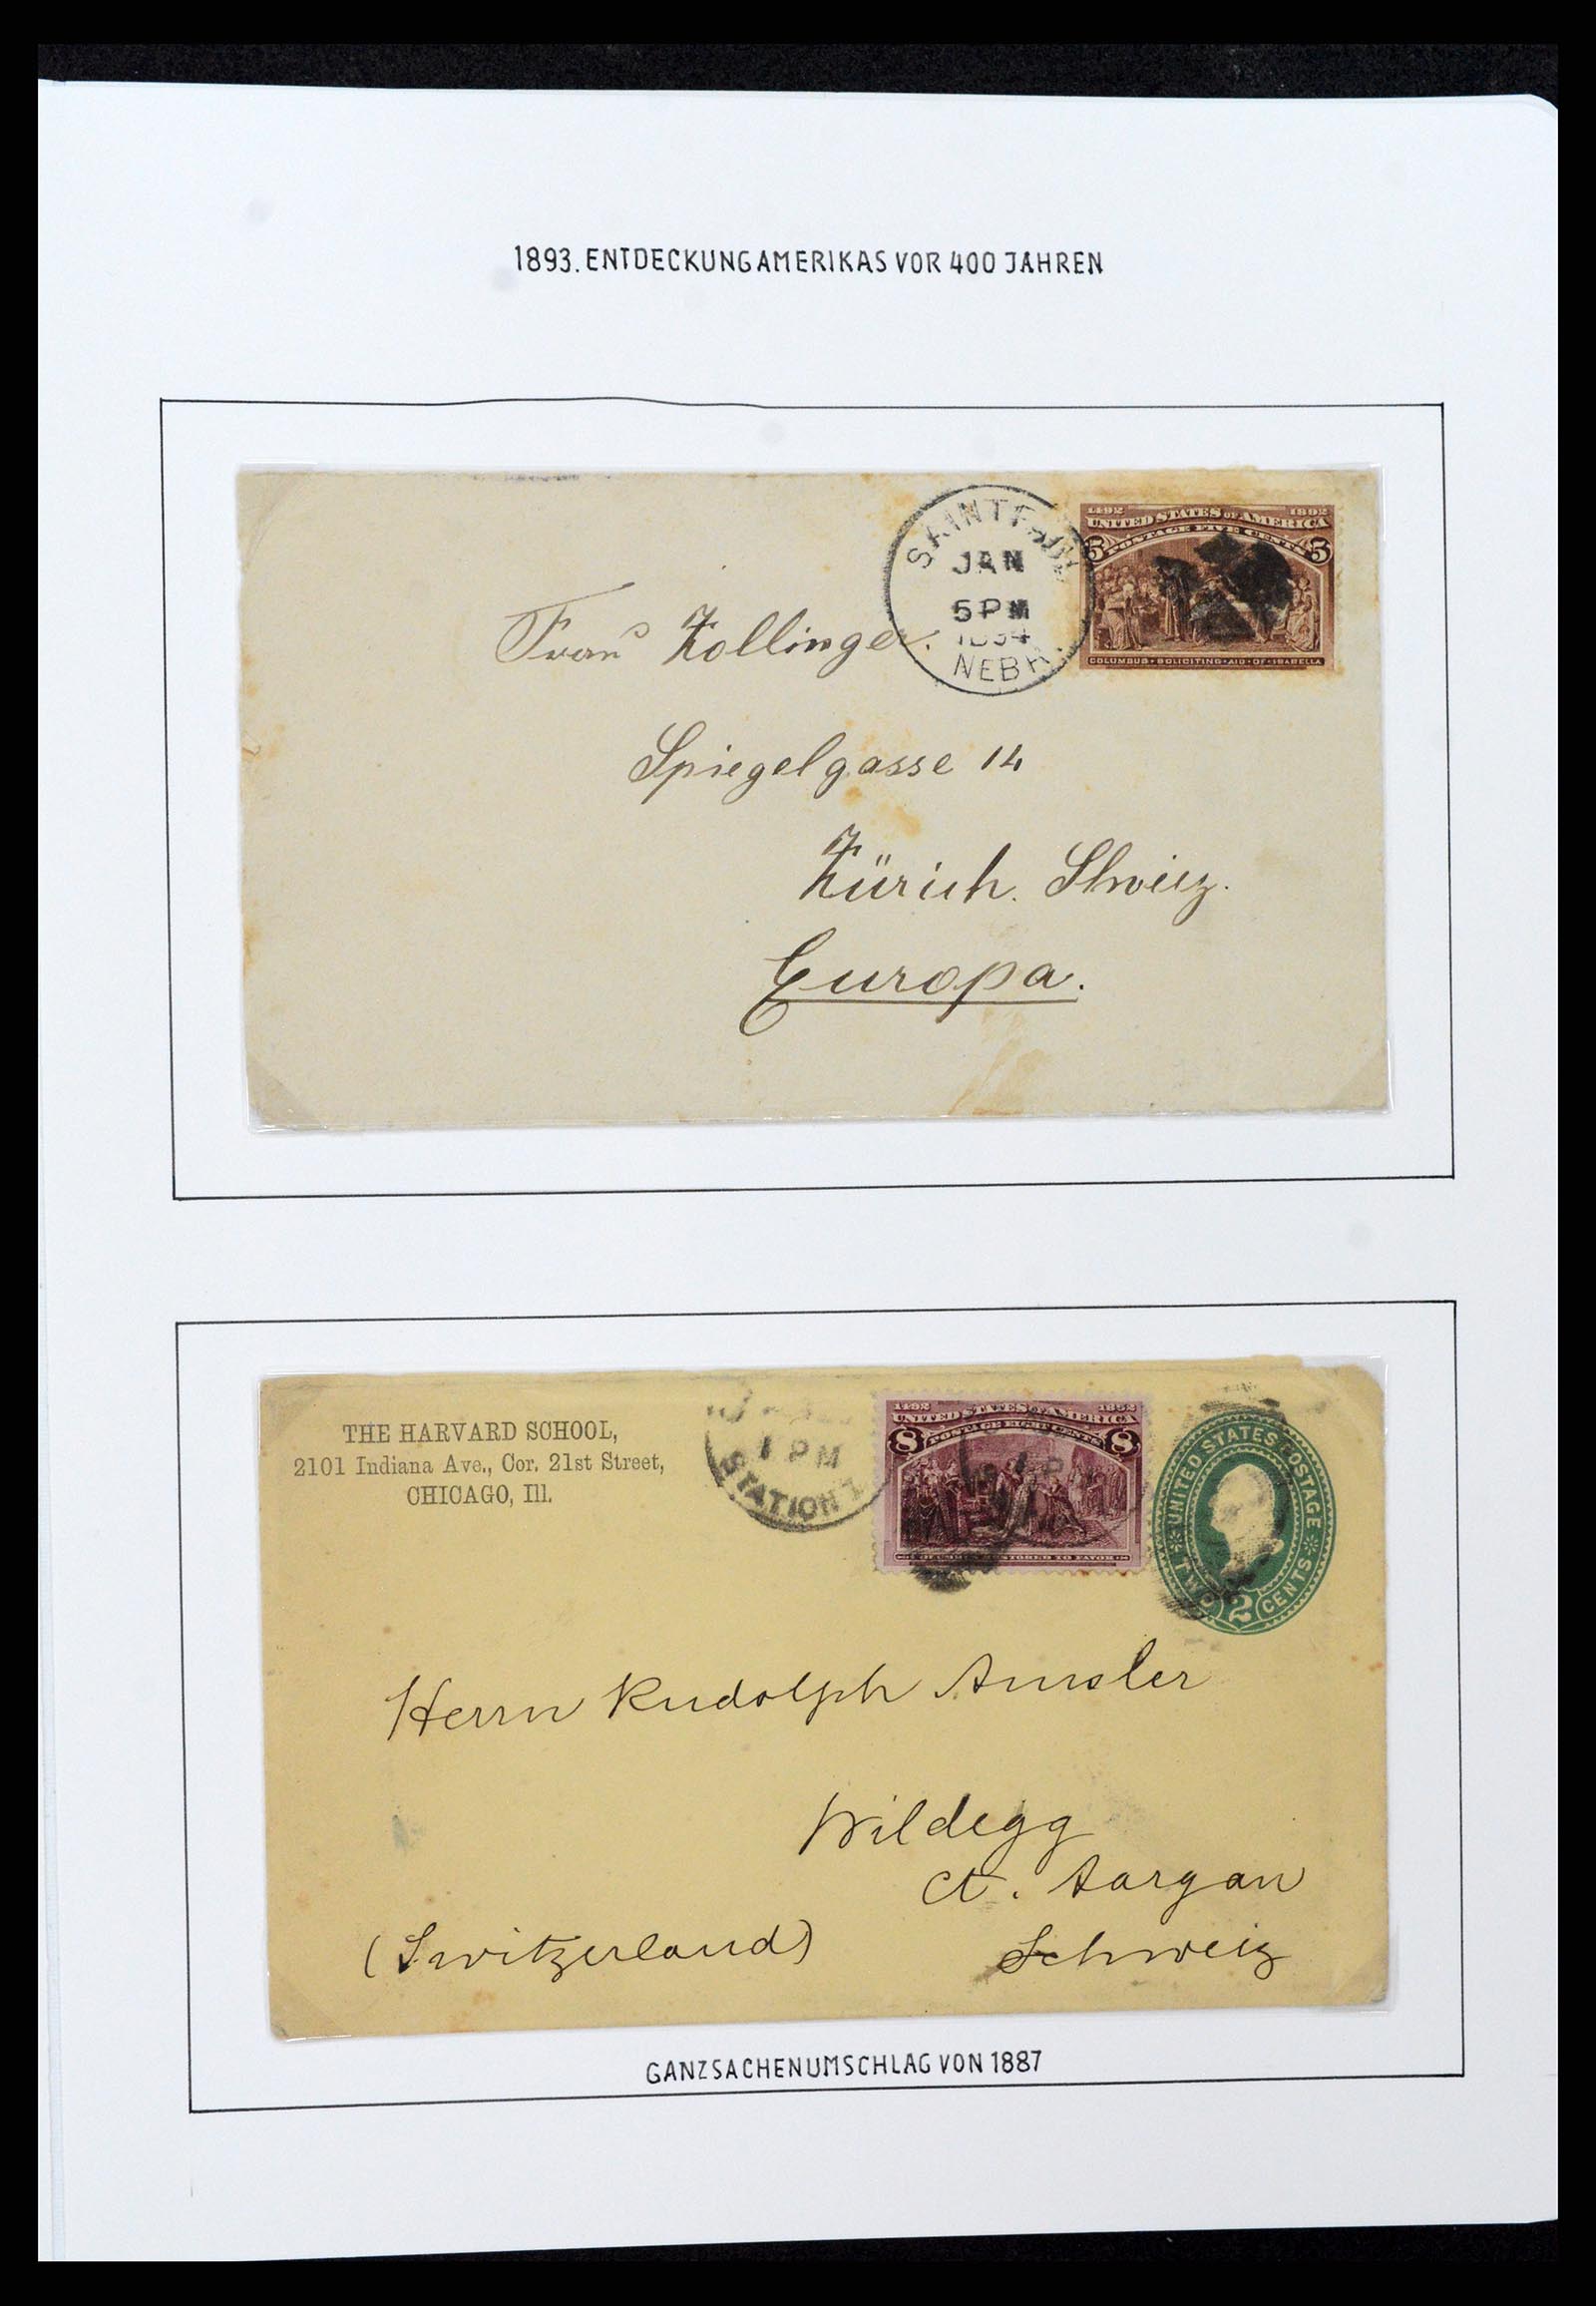 1893. ENTDECKUNG AMERIKAS VOR 400 JAHREN
SAINT PAUL
JAN
5 PM
1894
NEBR.
1492 1892
UNITED STATES OF AMERICA
POSTAGE FIVE CENTS
5 5
COLUMBUS SOLICITING AID OF ISABELLA
Frau Zollinger.
Spiegelgasse 14
Zürich. Schweiz.
Europa.
THE HARVARD SCHOOL,
2101 Indiana Ave., Cor. 21st Street,
CHICAGO, Ill.
1 PM
STATION
1492 1892
UNITED STATES OF AMERICA
POSTAGE EIGHT CENTS
8 8
RESTORED TO FAVOR
UNITED STATES POSTAGE
TWO 2 CENTS
Herrn Rudolph Amsler
Wildegg
Ct. Aargau
(Switzerland) Schweiz
GANZSACHENUMSCHLAG VON 1887